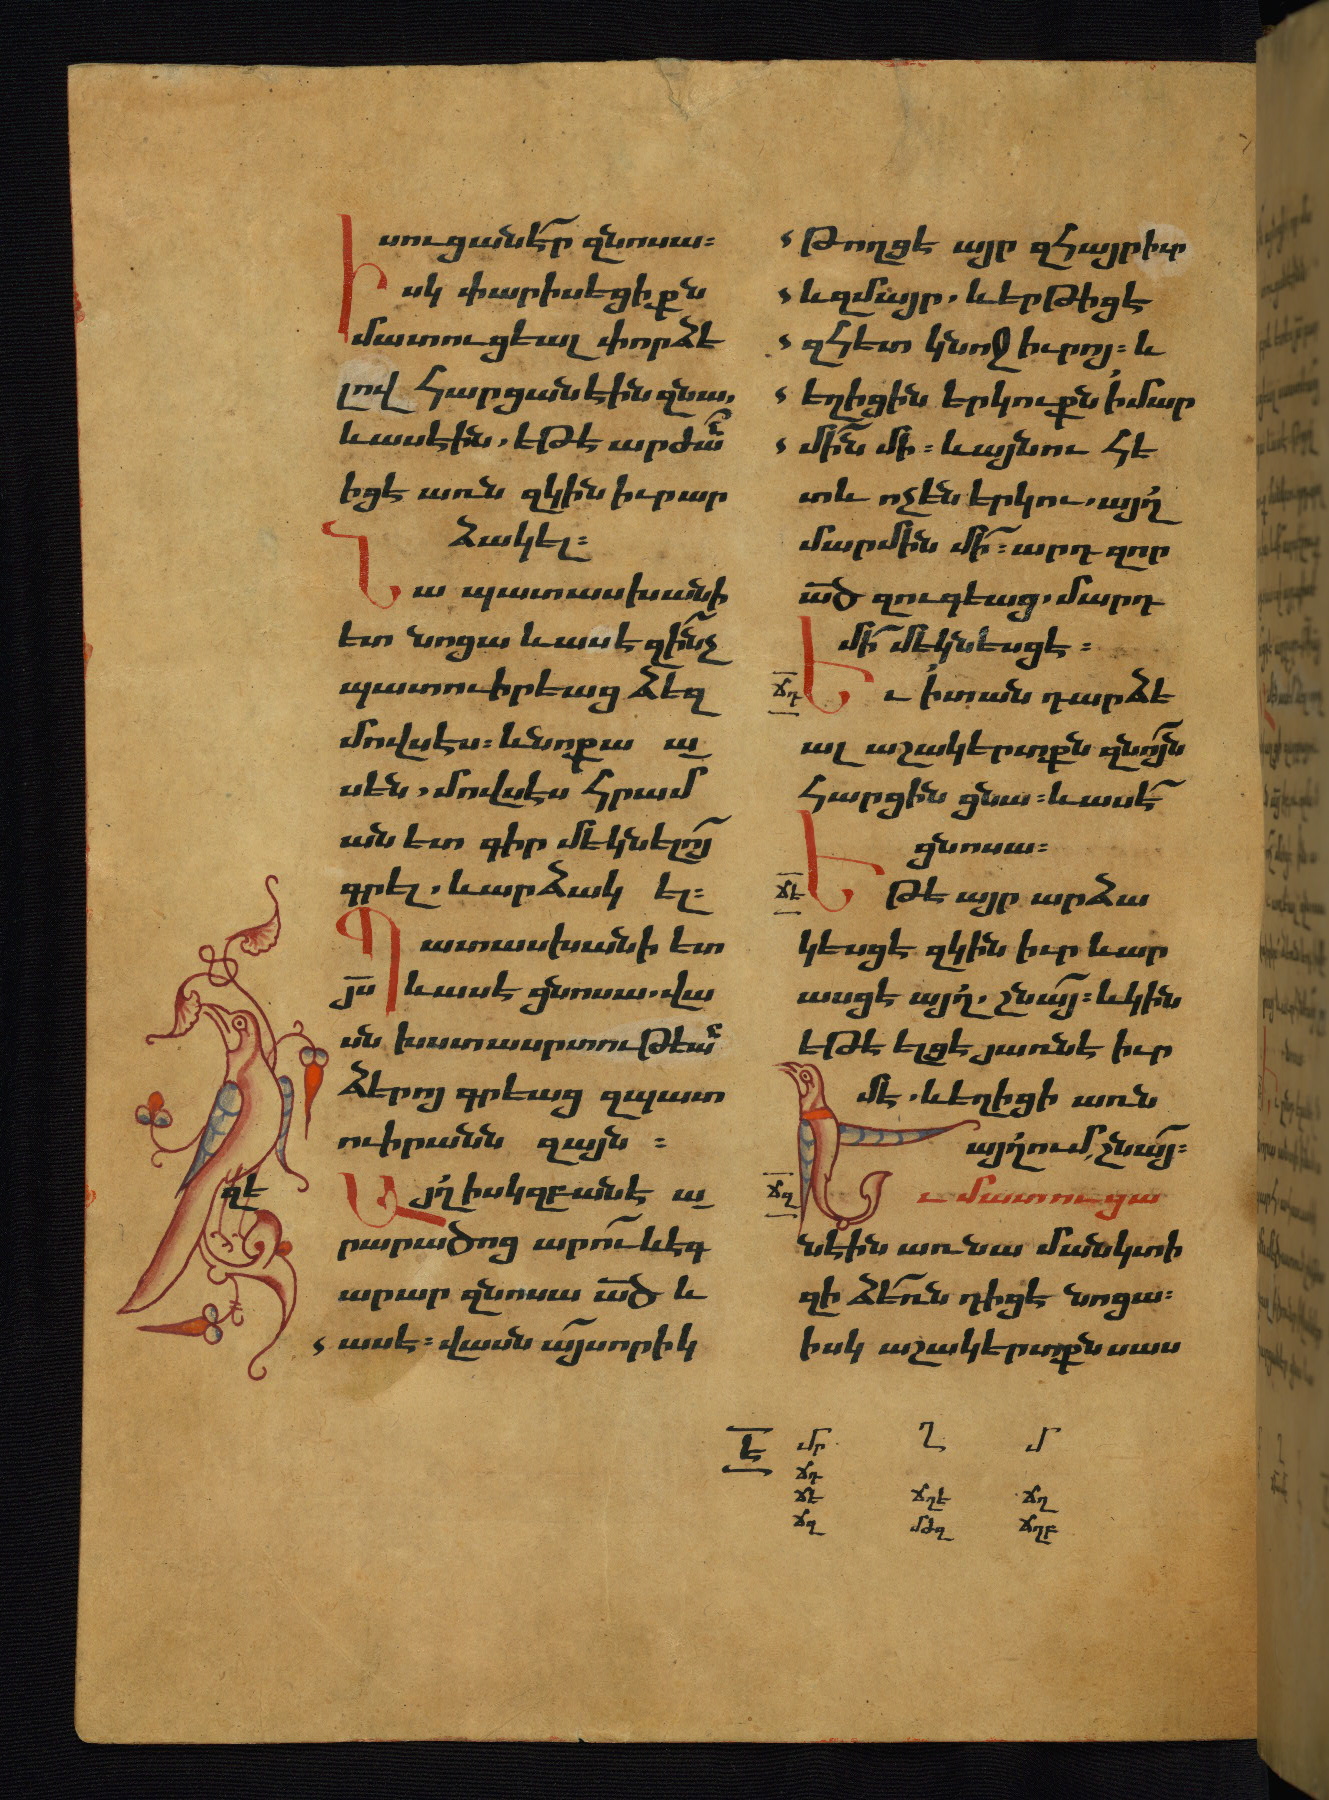 սուցանէր զնոսա։
Իսկ փարիսեցիքն
մատուցեալ փորձե
լով հարցանէին զնա,
և ասէին, եթէ արժա՞ն
իցէ առն զկին իւր ար
ձակել։
Նա պատասխանի
ետ նոցա և ասէ զի՞նչ
պատուիրեաց ձեզ
մովսէս։ և նոքա ա
սեն, մովսէս հրամ
ան ետ գիր մեկնելոյ
գրել, և արձակ ել։
Պատասխանի ետ
յս և ասէ ցնոսա. վա
սն խստասրտութեան
ձերոյ գրեաց զպատ
ուիրանն զայն ։
զե
Այղ ի սկզբանէ ա
րարածոց արու և էգ
արար զնոսա ած և
ասէ։ վասն այսորիկ
Թողցէ այր զհայր իւր
և զմայր, և երթիցէ
զհետ կնոջ իւրոյ։ և
եղիցին երկուքն ի մար
մին մի ։ և այնու հե
տև ոչ են երկու, այղ
մարմին մի ։ արդ զոր
ած զուգեաց, մարդ
մի մեկնեսցէ ։
ճդ
Եւ ի տան դարձե
ալ աշակերտքն զնոյն
հարցին ցնա։ և ասէ
ցնոսա։
ճե
Եթէ այր արձա
կեսցէ զկին իւր և առ
ասցէ այղ, շնայ։ և կին
եթէ ելցէ յառնէ իւր
մէ, և եղիցի առն
այղում, շնայ։
ճզ
Եւ մատուցա
նէին առ նա մանկտի
զի ձեռն դիցէ նոցա։
իսկ աշակերտքն սաս
Ե մր ղ մ
ճդ
ճե ճղե ճղ
ճզ մժզ ճղբ